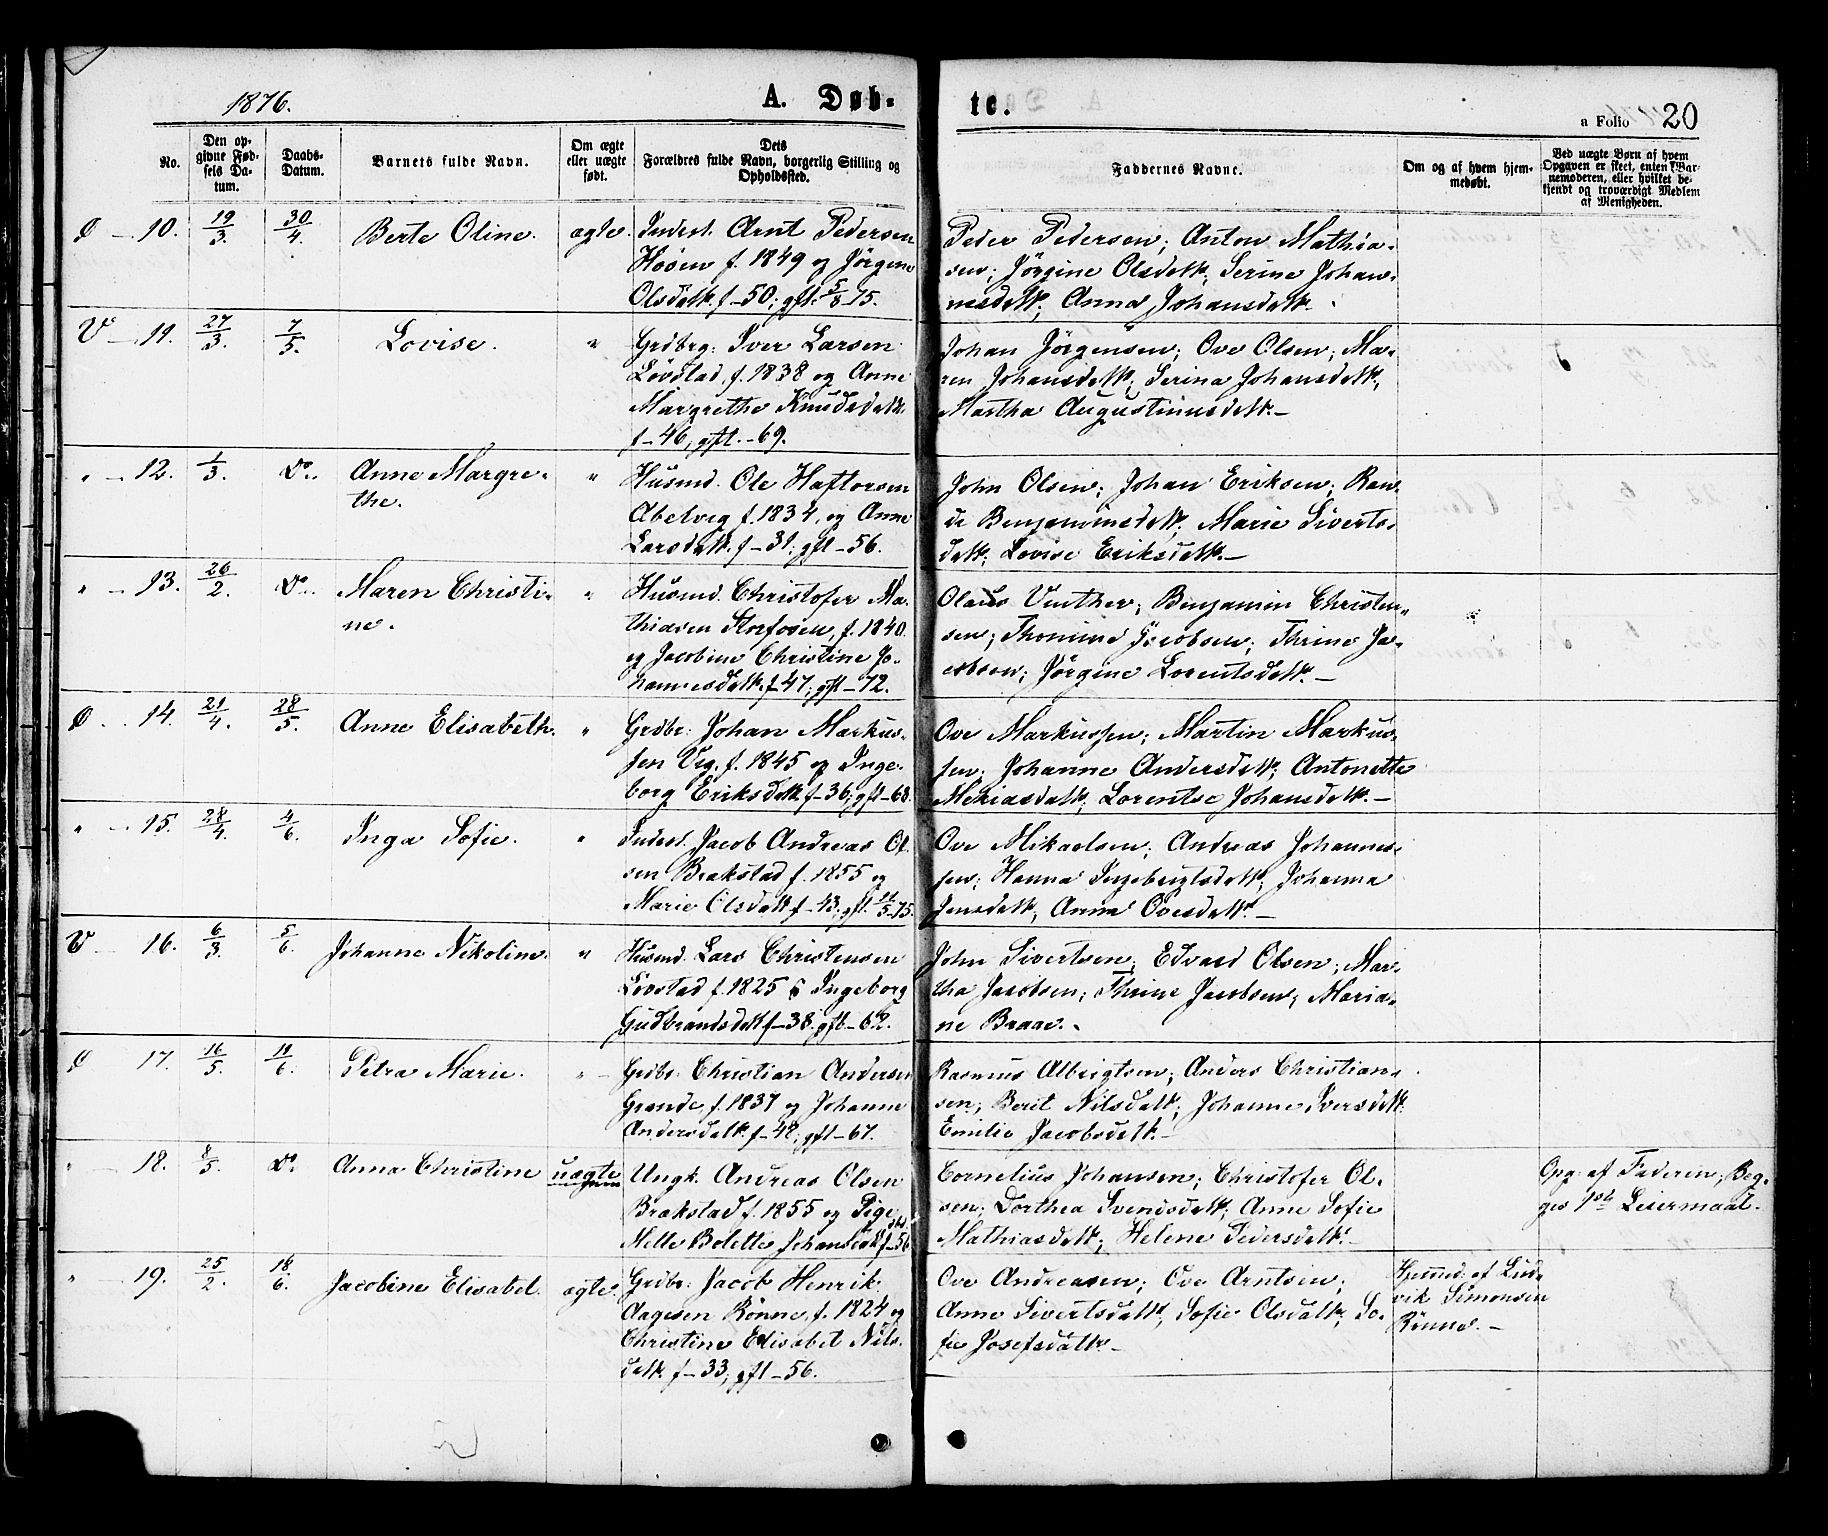 1876.
A. Døb-
te.
a Folio 20
No.
Den op-
givne Fød-
sels Da-
tum.
Daabs-
Datum.
Barnets fulde Navn.
Om ægte
eller uægte
født.
Dets
Forældres fulde Navn, borgerlig Stilling og
Opholdssted.
Faddernes Navne.
Om og af hvem hjem-
medøbt.
Ved uægte Børn af hvem
Opgaven er skeet, enten Bar-
nemoderen, eller hvilket be-
kjendt og troværdigt Medlem
af Menigheden.
10. 19/3. 30/4. Berte Oline. ægte.
Inderst. Arnt Pedersen
Høsen f. 1849 og Jørgine
Olsdatt. f-50; gft. 5/8 75.
Peder Pedersen; Anton Mathia-
sen; Jørgine Olsdatt; Serine Johan-
nesdatt; Anna Johansdatt.
V - 11. 27/3. 7/5. Lovise. "
Grdbrg. Iver Larsen
Løvstad, f. 1838 og Anne
Margrethe Knudsdatt.
f-46, gft.-69.
Johan Jørgensen; Ove Olsen; Ma-
ren Johansdatt; Serina Johansdatt;
Martha Augustinusdatt.-
" - 12. 1/3. Do. Anne Margre-
the. "
Husmd. Ole Haftorsen
Abelvig f. 1834, og Anne
Larsdatt. f-31; gft-56.
John Olsen; Johan Eriksen; Ran-
di Benjaminsdatt; Marie Siverts-
datt; Lovise Eriksdatt.-
" - 13. 26/2. Do. Maren Christi-
ne. "
Husmd. Christofer Ma-
thiasen Storfosen, f. 1840.
og Jacobine Christine Jo-
hannesdatt. f-47; gft-72.
Olaus Vinther; Benjamin Christen-
sen; Thomine Jacobsen; Thrine Ja-
cobsen; Jørgine Lorentsdatt.-
14. 21/4. 28/5. Anne Elisabeth. "
Grdbr: Johan Markus-
sen Vig. f. 1845 og Inge-
borg Eriksdatt. f-36; gft-68.
Ove Markussen; Martin Markus-
sen; Johanne Andersdatt; Antonette
Mekiasdatt; Lorentse Johansdatt.-
" - 15. 28/4. 4/6. Inga Sofie. "
Inderst. Jacob Andreas Ol-
sen Brakstad f. 1855 og
Marie Olsdatt f-43; gft. 5-75.
Ove Mikaelsen; Andreas Johannes-
sen; Hanna Ingebrigtsdatt; Johanna
Jensdatt; Anna Ovesdatt.-
V - 16. 6/3. 5/6. Johanne Nikoline. "
Husmd. Lars Christensen
Løvstad f. 1825 & Ingeborg
Gudbrandsdatt f-38. gft-62.
John Sivertsen; Edvard Olsen; Mar-
tha Jacobsen; Thrine Jacobsen; Maria-
ne Braae.
17. 16/5. 11/6. Petra Marie. "
Grdbr. Christian Andersen
Grande, f. 1837 og Johanne
Andersdatt. f-42; gft-67.
Rasmus Albrigtsen; Anders Christian-
sen; Berit Nilsdatt; Johanne Iversdatt.
Emilie Jacobsdatt.-
" 18. 8/5. Do. Anna Christine uægte
Ungk. Andreas Olsen
Brakstad f. 1855 og Pige
Mette Bolette Johansdatt f-56.
Cornelius Johansen; Christofer Ol-
sen; Dorthea Svendsdatt; Anne Sofie
Mathiasdatt; Helene Pedersdatt.-
Opg. af Faderen; Beg-
ges 1ste Leiermaal.
" 19. 25/2. 18/6. Jacobine Elisabet. ægte.
Grdbr: Jacob Henrik
Aagesen Rønne, f. 1824 og
Christine Elisabet Nils-
datt f-33; gft-56.
Ove Andreasen; Ove Arntsen;
Anne Sivertsdatt, Sofie Olsdatt; So-
fie Josefsdatt.-
Hjemmd. af Lud-
vik Simonsen
Rønne.-